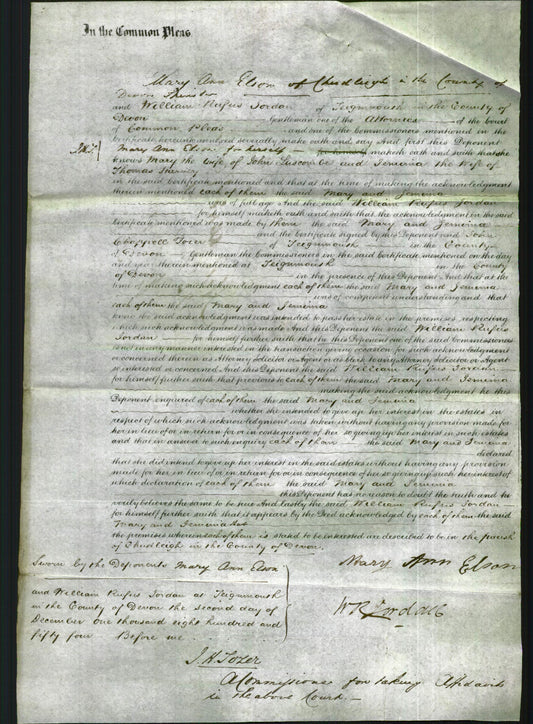 In the Common Pleas.
Mary Ann Elson of Chudleigh in the County of
Devon Spinster
and William Rufus Jordan of Teignmouth in the County of
Devon Gentleman one of the Attornies of the Court
of Common Pleas and one of the Commissioners mentioned in the
certificate hereunto annexed severally make oath and say And first this Deponent
Mary Ann Elson for herself maketh oath and saith that she
knows Mary the wife of John Luscombe and Jemima the Wife of
Thomas
in the said certificate mentioned and that at the time of making the acknowledgment
therein mentioned each of them the said Mary and Jemima
was of full age And the said William Rufus Jordan
for himself maketh oath and saith that the acknowledgment in the said
certificate mentioned was made by them the said Mary and Jemima
and the certificate signed by this Deponent and John
Tozer of Teignmouth in the County
of Devon Gentleman the Commissioners in the said certificate mentioned on the day
and year therein mentioned at Teignmouth in the County
of Devon in the presence of this Deponent And that at the
time of making such acknowledgment each of them the said Mary and Jemima
was of competent understanding and that
each of them the said Mary and Jemima
knew the said acknowledgment was intended to pass her estate in the premises respecting
which such acknowledgment was made And this Deponent the said William Rufus
Jordan for himself further saith that he this Deponent one of the said Commissioners
is not in any manner interested in the transaction giving occasion for such acknowledgment
or concerned therein as Attorney Solicitor or Agent or as Clerk to any Attorney Solicitor or Agent
so interested or concerned And this Deponent the said William Rufus Jordan
for himself further saith that previous to each of them the said Mary and Jemima
making the said acknowledgment he this
Deponent enquired of each of them the said Mary and Jemima
whether she intended to give up her interest in the estates in
respect of which such acknowledgment was taken without having any provision made for
her in lieu of or in return for or in consequence of her so giving up her interest in such estates
and that in answer to such enquiry each of them the said Mary and Jemima
declared
that she did intend to give up her interest in the said estates without having any provision
made for her in lieu of or in return for or in consequence of her so giving up such her interest of
which declaration of each of them the said Mary and Jemima
this Deponent has no reason to doubt the truth and he
verily believes the same to be true And lastly the said William Rufus Jordan
for himself further saith that it appears by the Deed acknowledged by each of them the said
Mary and Jemima that
the premises wherein each of them is stated to be interested are described to be in the parish
of Chudleigh in the County of Devon.
Sworn by the Deponents Mary Ann Elson
and William Rufus Jordan at Teignmouth
in the County of Devon the second day of
December one thousand eight hundred and
fifty four Before me
Mary Ann Elson
W R Jordan
J. H. Tozer
A Commissioner for taking Affidavits
in the above Court.